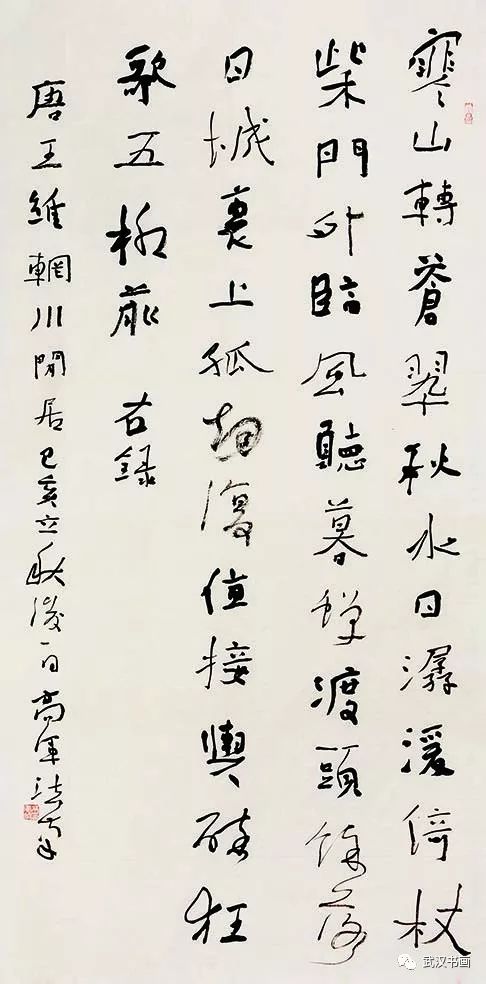 寒山轉蒼翠秋水日潺湲倚杖
柴門外臨風聽暮蟬渡頭餘落
日城裏上孤烟復值接輿醉狂
歌五柳前 右錄
唐王維輞川閒居己亥立秋後一日高軍
武汉书画